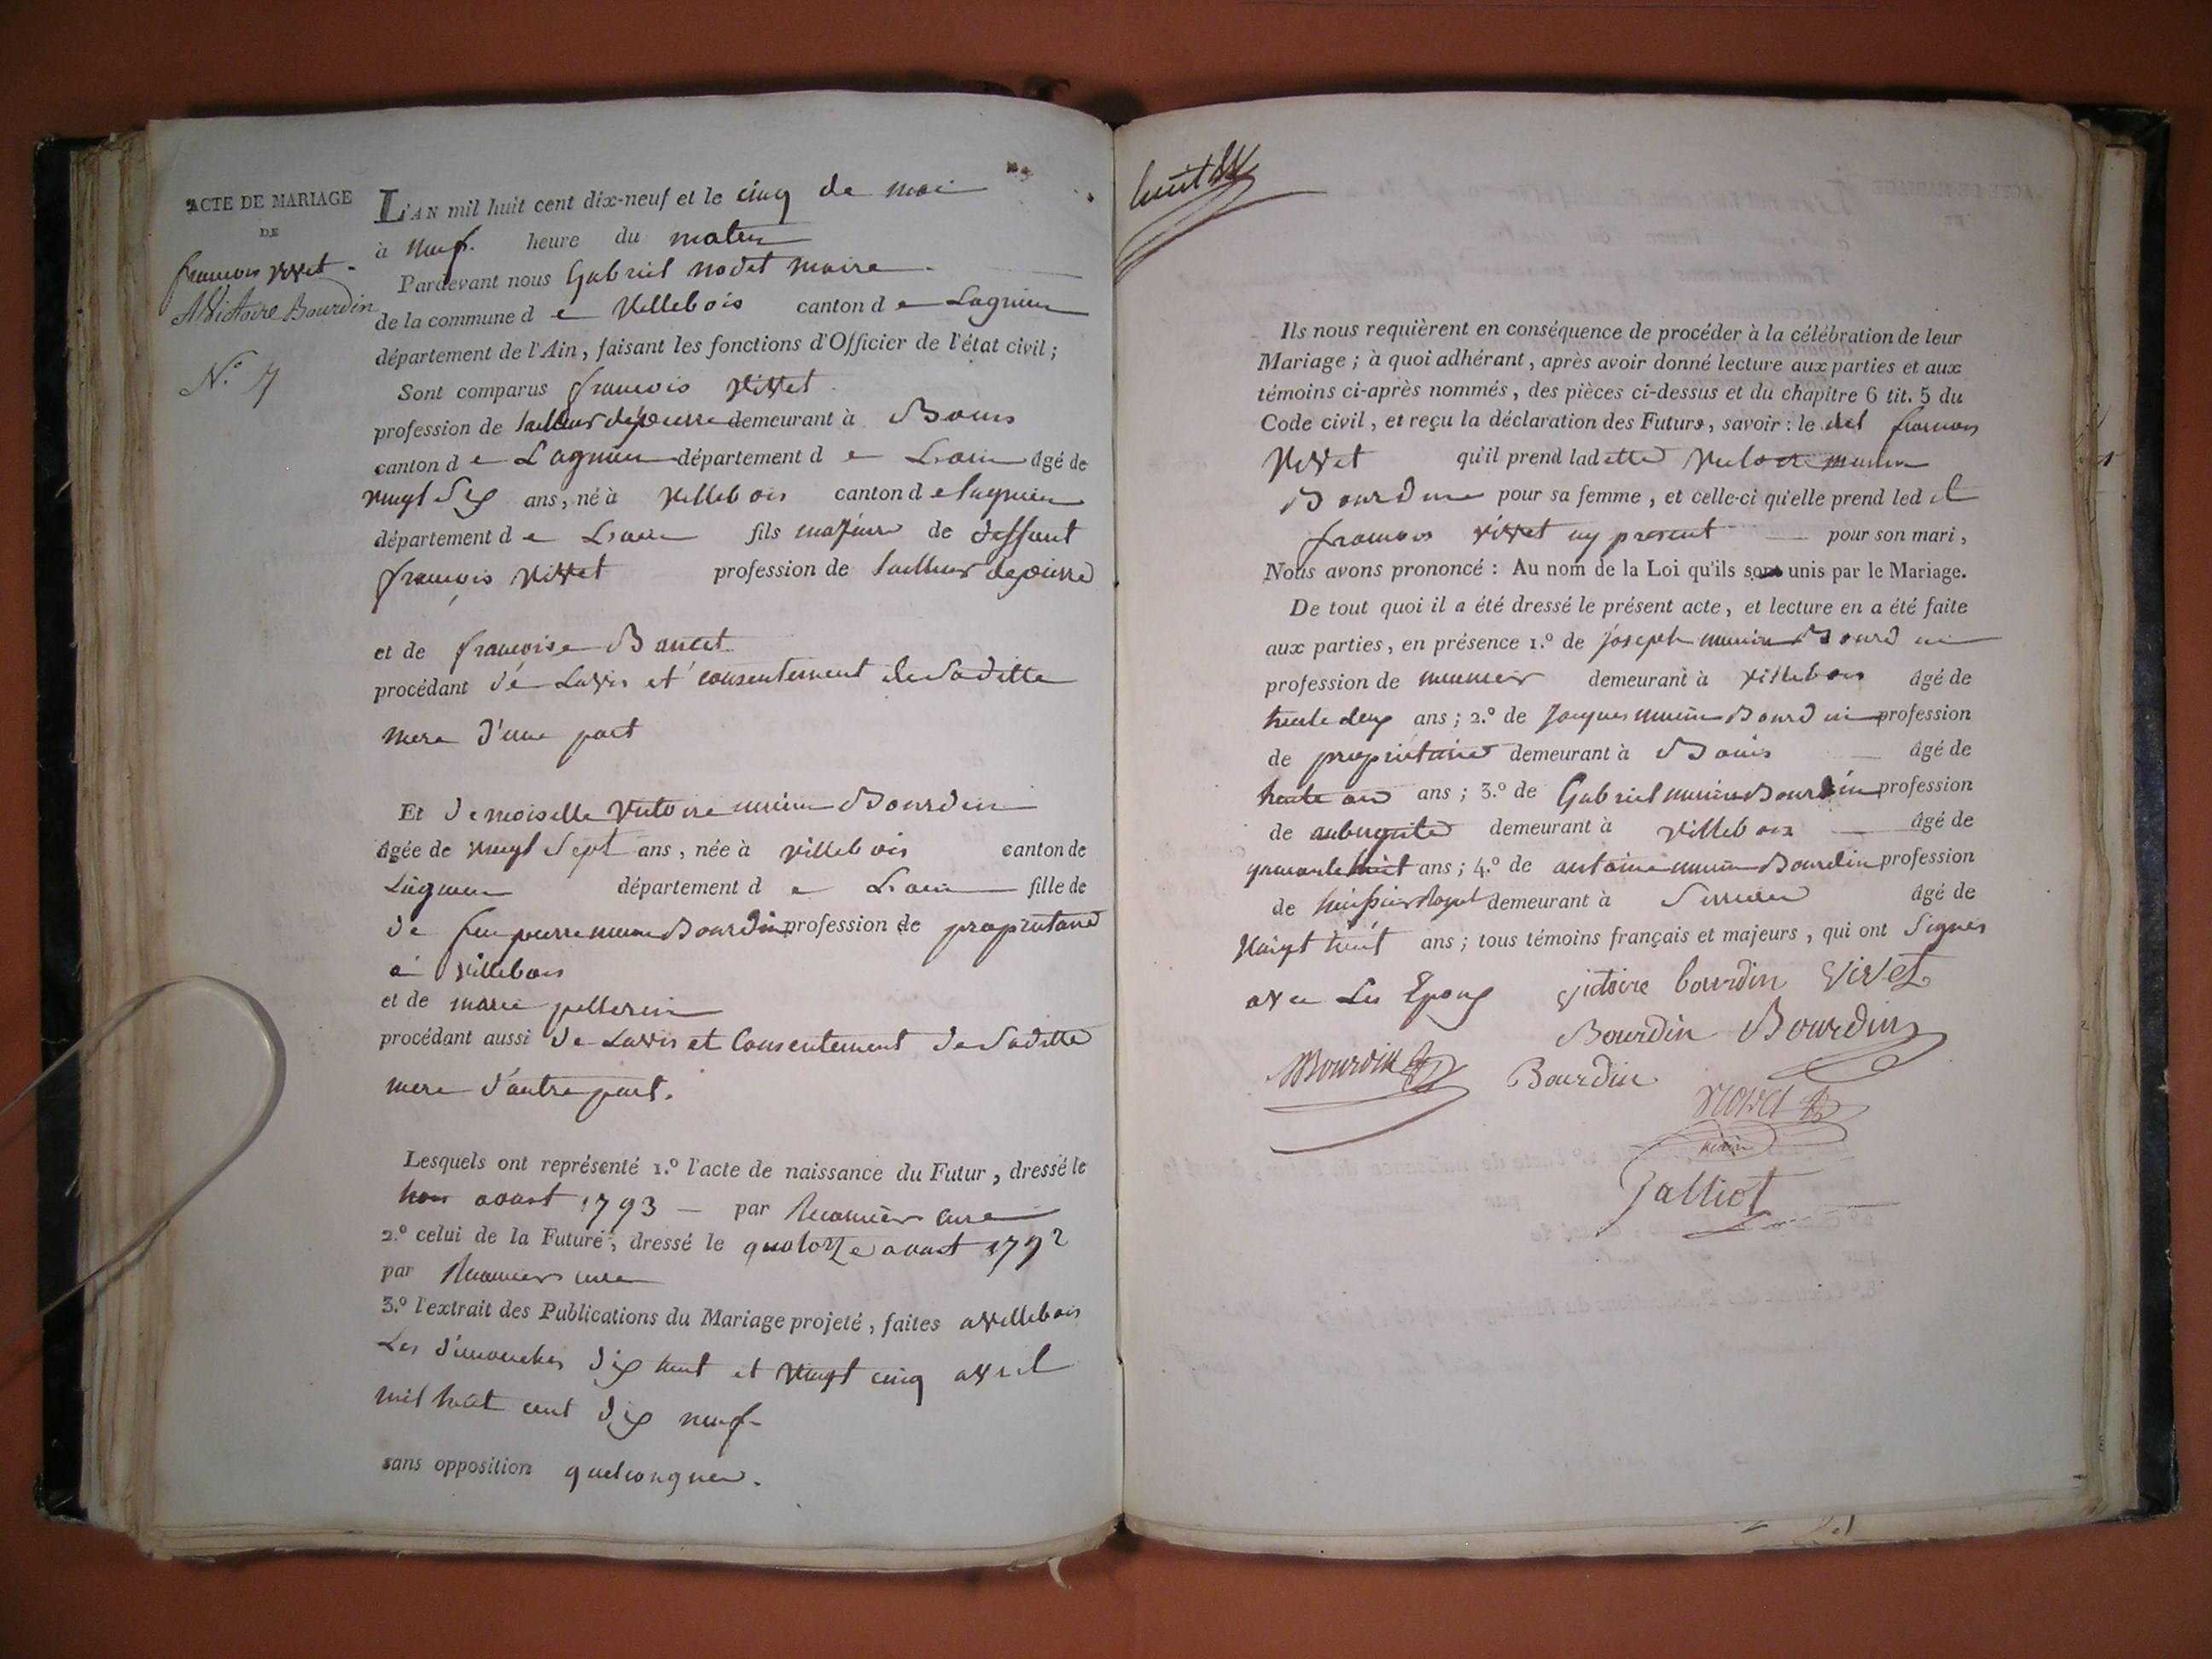 ACTE DE MARIAGE
DE
françois vivet
& Victoire Bourdin
N.° 7
L'AN mil huit cent dix-neuf et le cinq de mai
à neuf heure du matin
Pardevant nous Gabriel nodet maire
de la commune de Villebois canton de Lagnieu
département de l'Ain, faisant les fonctions d'Officier de l'état civil;
Sont comparus françois vivet
profession de tailleur de pierre demeurant à Bouis
canton de Lagnieu département de Lain âgé de
vingt six ans, né à villebois canton de lagnieu
département de Lain fils majeur de deffunt
françois vivet profession de tailleur de pierre
et de françoise Bancet
procédant de Lavis et consentement de Saditte
mere d'une part
Et demoiselle victoire meunier Bourdin
âgée de vingt Sept ans, née à villebois canton de
Lagnieu département de Lain fille de
de feu pierre meunier Bourdin profession de propriétaire
à villebois
et de marie pellerin
procédant aussi de Lavis et Consentement de Saditte
mere d'autre part.
Lesquels ont représenté 1.° l'acte de naissance du Futur, dressé le
trois aoust 1793 — par Recamier curé
2.° celui de la Future, dressé le quatorze aoust 1792
par Recamier curé
3.° l'extrait des Publications du Mariage projeté, faites a villebois
Les dimanches dix huit et vingt cinq avril
mil huit cent dix neuf
sans opposition quelconque.
huit
Ils nous requièrent en conséquence de procéder à la célébration de leur
Mariage; à quoi adhérant, après avoir donné lecture aux parties et aux
témoins ci-après nommés, des pièces ci-dessus et du chapitre 6 tit. 5 du
Code civil, et reçu la déclaration des Futurs, savoir: le dit françois
vivet qu'il prend ladette victoire meunier
Bourdin pour sa femme, et celle-ci qu'elle prend led it
françois vivet cy present pour son mari,
Nous avons prononcé: Au nom de la Loi qu'ils sont unis par le Mariage.
De tout quoi il a été dressé le présent acte, et lecture en a été faite
aux parties, en présence 1.° de joseph meunier Bourdin
profession de meunier demeurant à villebois âgé de
trente deux ans; 2.° de Jacques meunier Bourdin profession
de propriétaire demeurant à Bouis âgé de
trente ans; 3.° de Gabriel meunier Bourdin profession
de aubergiste demeurant à villebois âgé de
quarante huit ans; 4.° de antoine meunier Bourdin profession
de huissier Royal demeurant à âgé de
vaingt huit ans; tous témoins français et majeurs, qui ont Signés
avec Les Epoux victoire bourdin vivet
Bourdin Bourdin
Bourdin Bourdin
Nodet
maire
Jalliot